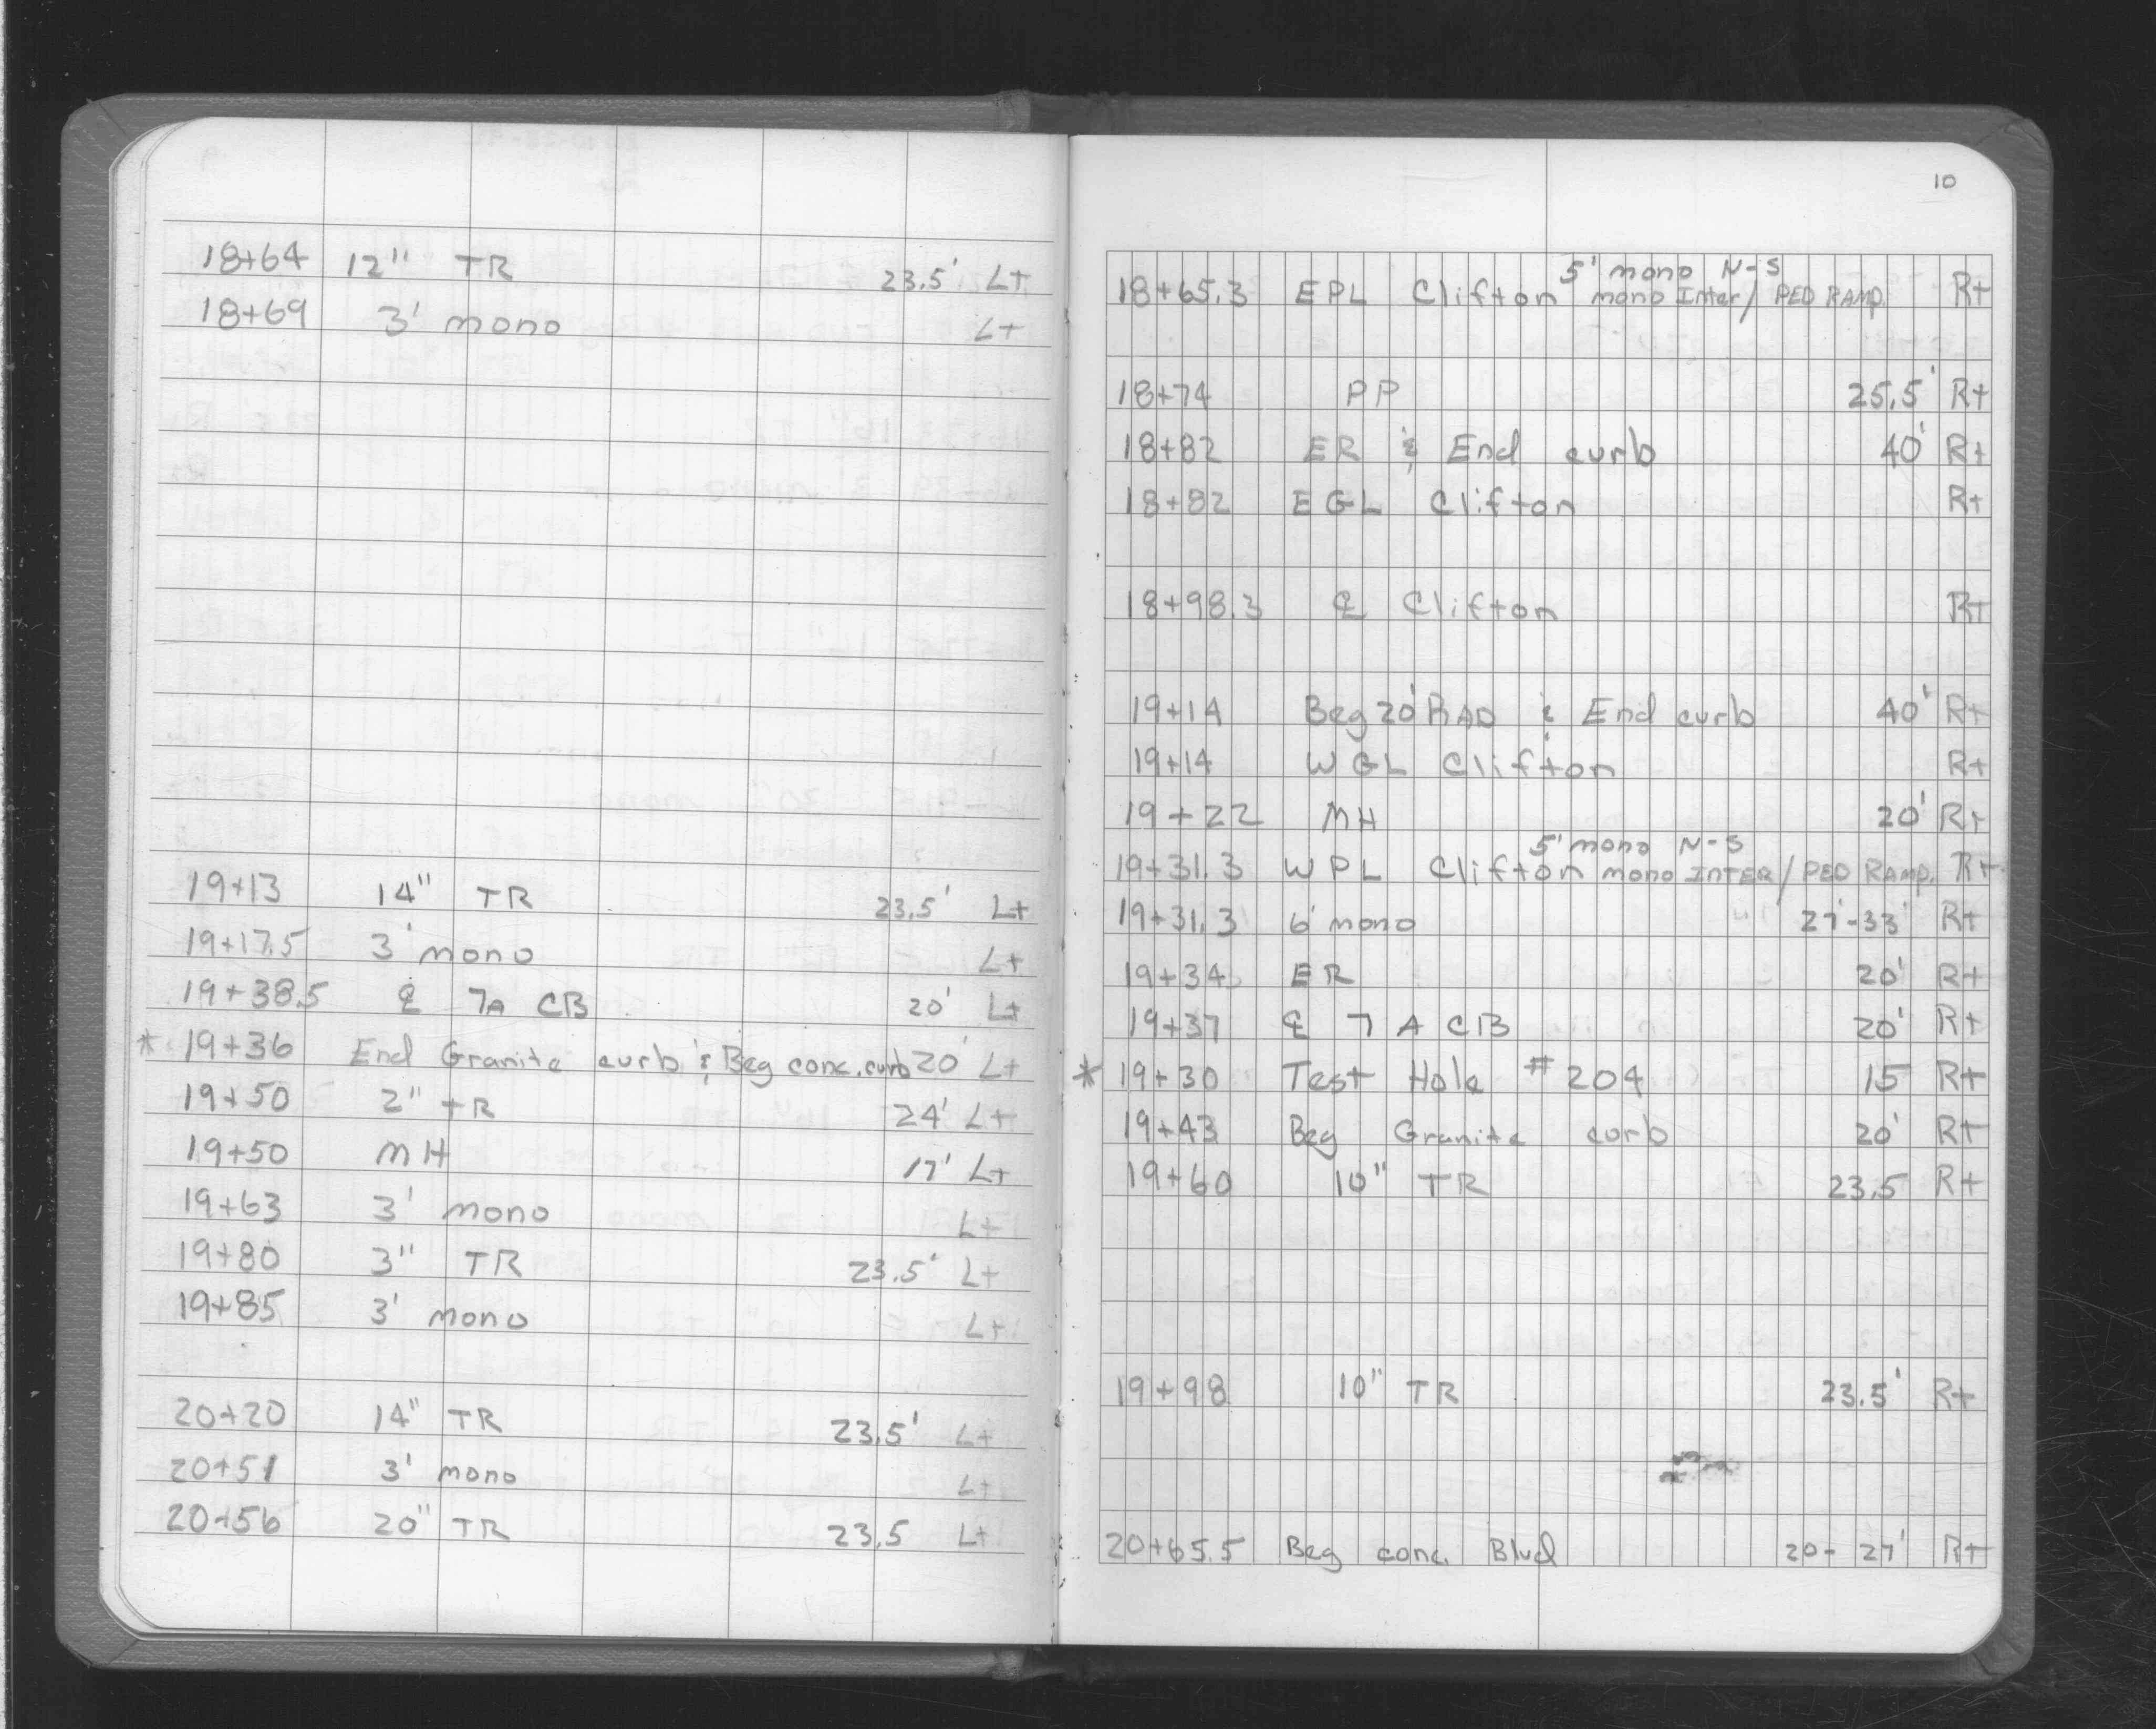 18+64 12" TR 23.5' Lt
18+69 3' mono Lt
19+13 14" TR 23.5' Lt
19+17.5 3' mono Lt
19+38.5 ℄ 7A CB 20' Lt
* 19+36 End Granite curb & Beg conc. curb 20' Lt
19+50 2" TR 24' Lt
19+50 MH 17' Lt
19+63 3' mono Lt
19+80 3" TR 23.5' Lt
19+85 3' mono Lt
20+20 14" TR 23.5' Lt
20+51 3' mono Lt
20+56 20" TR 23.5 Lt
10
5' mono N-S
18+65.3 EPL Clifton mono Inter/ PED RAMP. Rt
18+74 PP 25.5' Rt
18+82 ER & End curb 40' Rt
18+82 EGL Clifton Rt
18+98.3 ℄ Clifton Rt
19+14 Beg 20' RAD & End curb 40' Rt
19+14 WGL Clifton Rt
19+22 MH 20' Rt
5' mono N-S
19+31.3 WPL Clifton mono INTER/ PED RAMP. Rt
19+31.3 6' mono 27'-33' Rt
19+34 ER 20' Rt
19+37 ℄ 7A CB 20' Rt
* 19+30 Test Hole #204 15 Rt
19+43 Beg Granite curb 20' Rt
19+60 10" TR 23.5 Rt
19+98 10" TR 23.5' Rt
20+65.5 Beg conc. Blvd 20-27' Rt